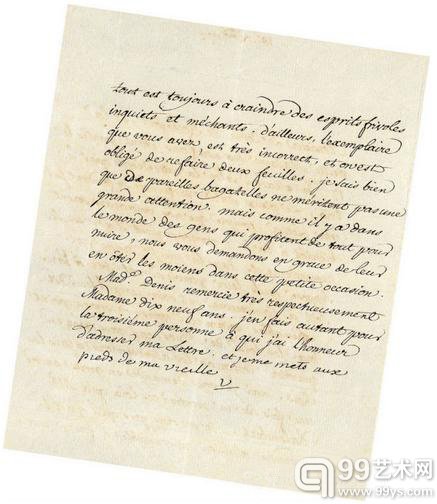 tout est toujours à craindre des esprits frivoles
inquiets et méchants. d'ailleurs, l'exemplaire
que vous avez, est très incorrect, et on est
obligé de refaire deux feuilles. je sais bien
que de pareilles bagatelles ne méritent pas une
grande attention. mais comme il y a dans
le monde des gens qui profitent de tout pour
nuire, nous vous demandons en grace de leur
en ôter les moiens dans cette petite occasion.
Made. Denis remercie très respectueusement
Madame dix neuf ans. j'en fais autant pour
la troisième personne à qui j'ai l'honneur
d'adresser ma Lettre. et je me mets aux
pieds de ma vieille
V
99艺术网
www.99ys.com